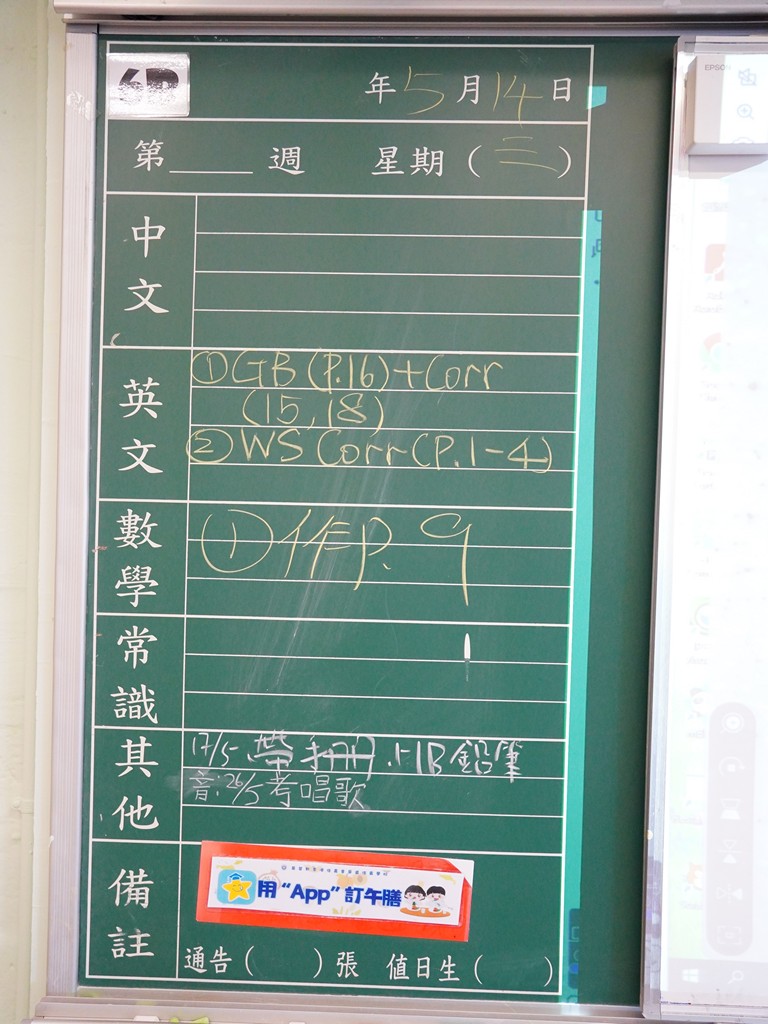 6B
年5月14日
第____週 星期(三)
中文
英文
①GB (P.16)+Corr
(15,18)
②WS Corr (P.1-4)
數學
①作P.9
常識
其他
17/5 帶手冊.HB鉛筆
音:26/5考唱歌
備註
用“App”訂午膳
通告( )張 值日生( )
EPSON